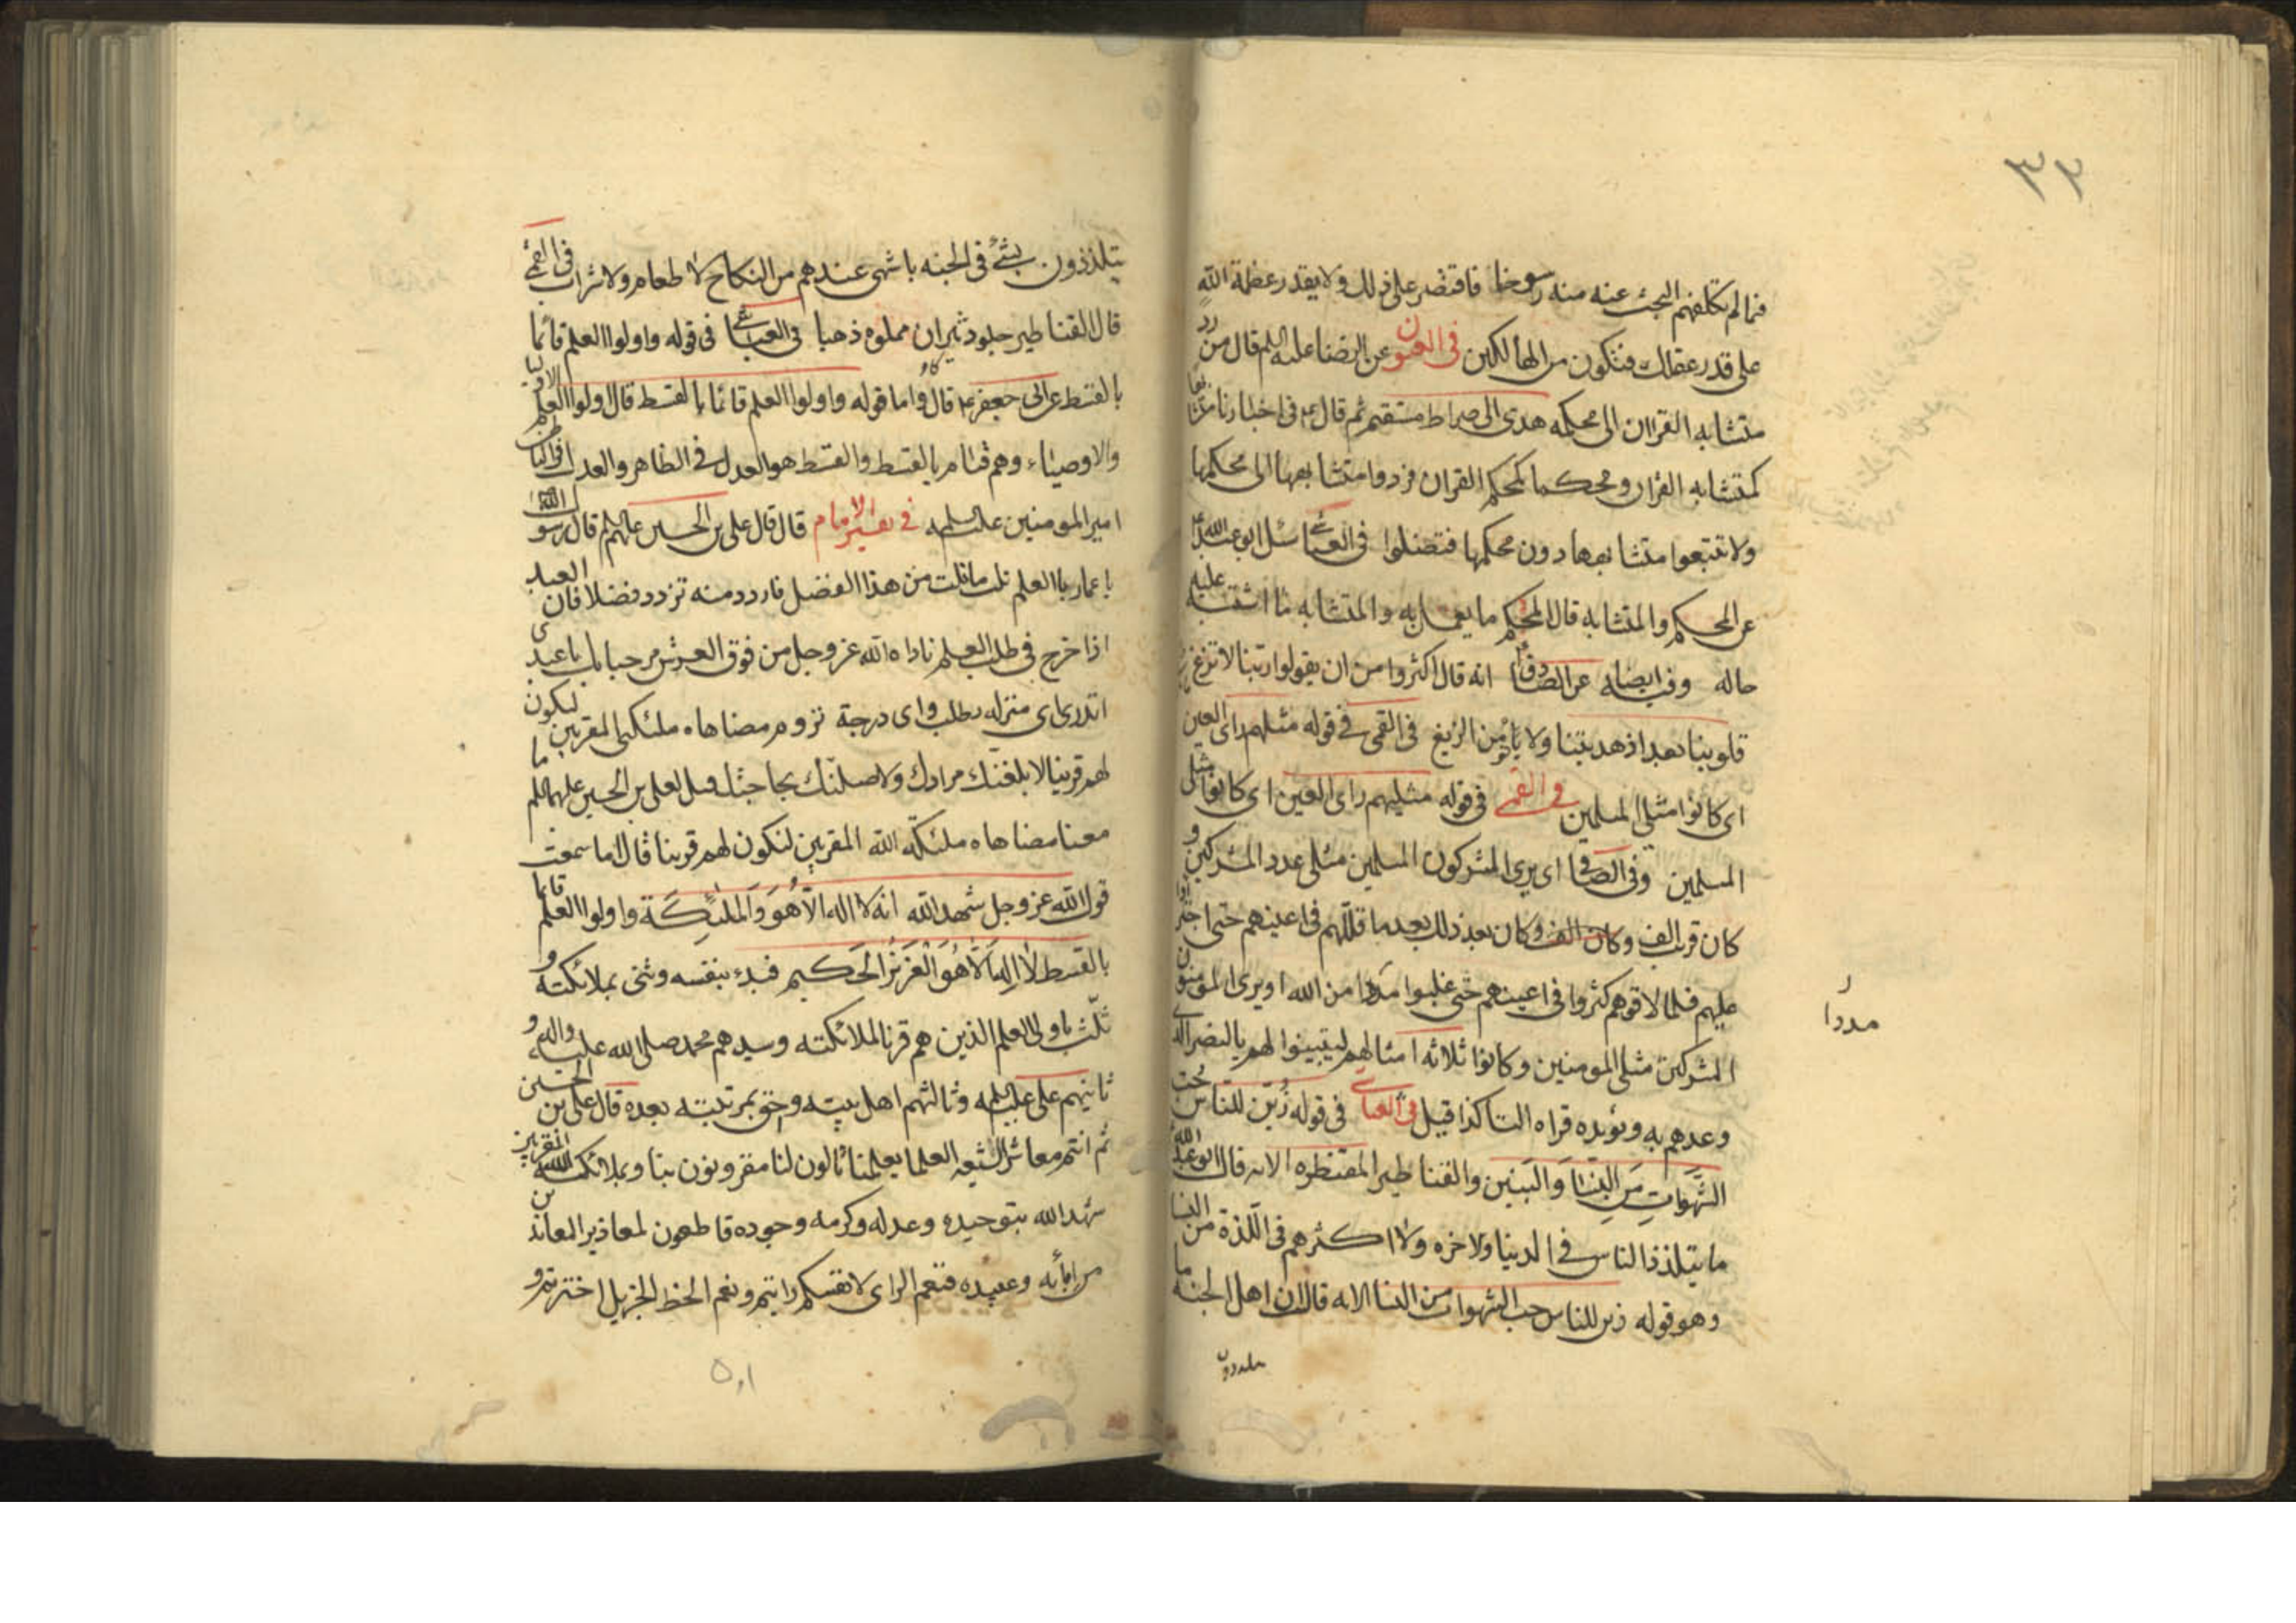 ٣٣
فما لم يكلفهم البحث عنه منه رسوخا فاقتصر على ذلك ولا يقدر عظمة الله
على قدر عقلك فتكون من الهالكين في العيون عن الرضا عليه السلم قال من رد
متشابه القران الى محكمه هدى الى صراط مستقيم ثم قال ع في اخبارنا متشابها
كمتشابه القران ومحكما كمحكم القران فردوا متشابهها الى محكمها
ولا تتبعوا متشابهها دون محكمها فتضلوا في العياشي سئل ابو عبد الله ع
عن المحكم والمتشابه قال المحكم ما يعمل به والمتشابه ما اشتبه عليه
حاله وفيه ايضا عن الصادق ع انه قال اكثروا من ان يقولوا ربنا لا تزغ
قلوبنا بعد اذ هديتنا ولا يأمن الزيغ في القمي في قوله مثليهم راى العين
اى كانوا مثلى المسلمين في القمي في قوله مثليهم راى العين اى كانوا مثلى
المسلمين وفي الصافي اى يرى المشركون المسلمين مثلى عدد المشركين و
كان قريب الف وكان الف وكان بعد ذلك بعد ما قللهم في اعينهم حتى اجترؤا
عليهم فلما لاقوهم كثروا في اعينهم حتى غلبوا مددا من الله او يرى المؤمنون
المشركين مثلى المومنين وكانوا ثلاثه امثالهم ليتبينوا لهم بالنصر الذى
وعدهم به ويؤيده قراه التا كذا قيل في العياشي في قوله زُيّن للناس حب
الشَّهَواتِ مِنَ النِّسَا وَالبَنين والقناطير المقنطره الايه قال ابو عبد الله ع
ما يتلذذ الناس في الدنيا والاخره ولا اكثرهم في اللذة من النسا
وهو قوله زين للناس حب الشهوات من النسا الايه قال ان اهل الجنه ما
يتلذذون
مددا
يتلذذون بشئ في الجنه باشهى عندهم من النكاح لا طعام ولا شراب في القمي
قال القناطير جلود ثيران مملوه ذهبا في العياشي في قوله واولوا العلم قائما
بالقسط عن ابى جعفر ع قال واما قوله واولوا العلم قائما بالقسط قال اولوا العلم الانبيا
والاوصياء وهم قيام بالقسط والقسط هو العدل في الظاهر والعدل في الباطن
امير المومنين عليه السلم في تفسير الامام قال قال على بن الحسين عليهم السلم قال رسول الله
يا عمار بالعلم نلت ما نلت من هذا الفضل فازدد منه تزدد فضلا فان العبد
اذا خرج في طلب العلم ناداه الله عز وجل من فوق العرش مرحبا بك يا عبدى
اتدرى اى منزله تطلب واى درجة تروم مضاهاه ملئكتى المقربين لتكون
لهم قرينا لابلغنك مرادك ولاصلنّك بحاجتك قيل لعلى بن الحسين عليهما السلم ما
معنا مضاهاه ملئكة الله المقربين لتكون لهم قرينا قال اما سمعت
قول الله عز وجل شهد الله انه لا اله الّا هُوَ وَالمَلئِكَة واولوا العلم قائما
بالقسط لا اله الّا هُوَ العَزيزُ الحَكيم فبدء بنفسه وثنى بملائكته و
ثلّث باولى العلم الذين هم قرنا الملائكته وسيدهم محمد صلى الله عليه واله و
ثانيهم على عليه السلم وثالثهم اهل بيته واحق بمرتبته بعده قال على بن الحسين
ثم انتم معاشر الشيعه العلما بعلمنا تالون لنا مقرونون بنا وبملائكه الله المقربين
شهد الله بتوحيده وعدله وكرمه وجوده قاطعون لمعاذير المعاندين
من امائه وعبيده فنعم الراى لانفسكم رايتم ونعم الحظ الجزيل اخترتم و